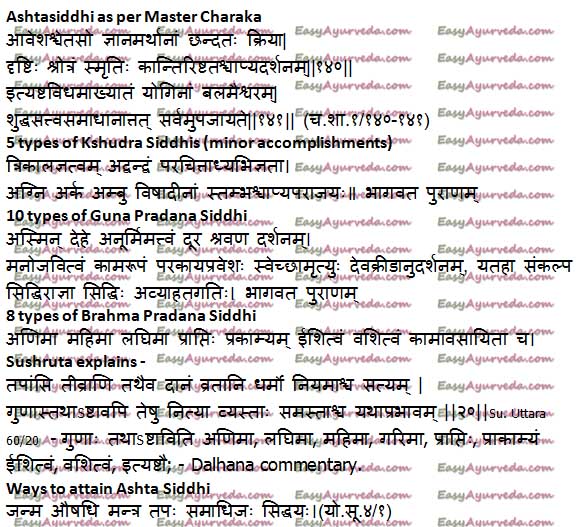 Ashtasiddhi as per Master Charaka
आवेशश्चेतसो ज्ञानमर्थानां छन्दतः क्रिया|
दृष्टिः श्रोत्रं स्मृतिः कान्तिरिष्टतश्चाप्यदर्शनम्||१४०||
इत्यष्टविधमाख्यातं योगिनां बलमैश्वरम्|
शुद्धसत्त्वसमाधानात्तत् सर्वमुपजायते||१४१|| (च.शा.१/१४०-१४१)
5 types of Kshudra Siddhis (minor accomplishments)
त्रिकालज्ञत्वम् अद्वन्द्वं परचित्ताध्यभिज्ञता।
अग्नि अर्क अम्बु विषादीनां स्तम्भश्चाप्यपराजयः॥ भागवत पुराणम्
10 types of Guna Pradana Siddhi
अस्मिन् देहे अनूर्मिमत्त्वं दूर श्रवण दर्शनम्|
मनोजवित्वं कामरूपं परकायप्रवेशः स्वेच्छामृत्युः देवक्रीडानुदर्शनम्, यतहा संकल्प
सिद्धिराज्ञा सिद्धिः अव्याहतगतिः। भागवत पुराणम्
8 types of Brahma Pradana Siddhi
अणिमा महिमा लघिमा प्राप्तिः प्रकाम्यम् ईशित्वं वशित्वं कामावसायिता च।
Sushruta explains -
तपांसि तीव्राणि तथैव दानं व्रतानि धर्मो नियमाश्च सत्यम् |
गुणास्तथाऽष्टावपि तेषु नित्या व्यस्ताः समस्ताश्च यथाप्रभावम् ||२०||Su. Uttara
60/20 - गुणाः तथाऽष्टाविति अणिमा, लघिमा, महिमा, गरिमा, प्राप्तिः, प्राकाम्यं
ईशित्वं, वशित्वं, इत्यष्टौ; - Dalhana commentary.
Ways to attain Ashta Siddhi
जन्म औषधि मन्त्र तपः समाधिजः सिद्धयः।(यो.सू.४/१)